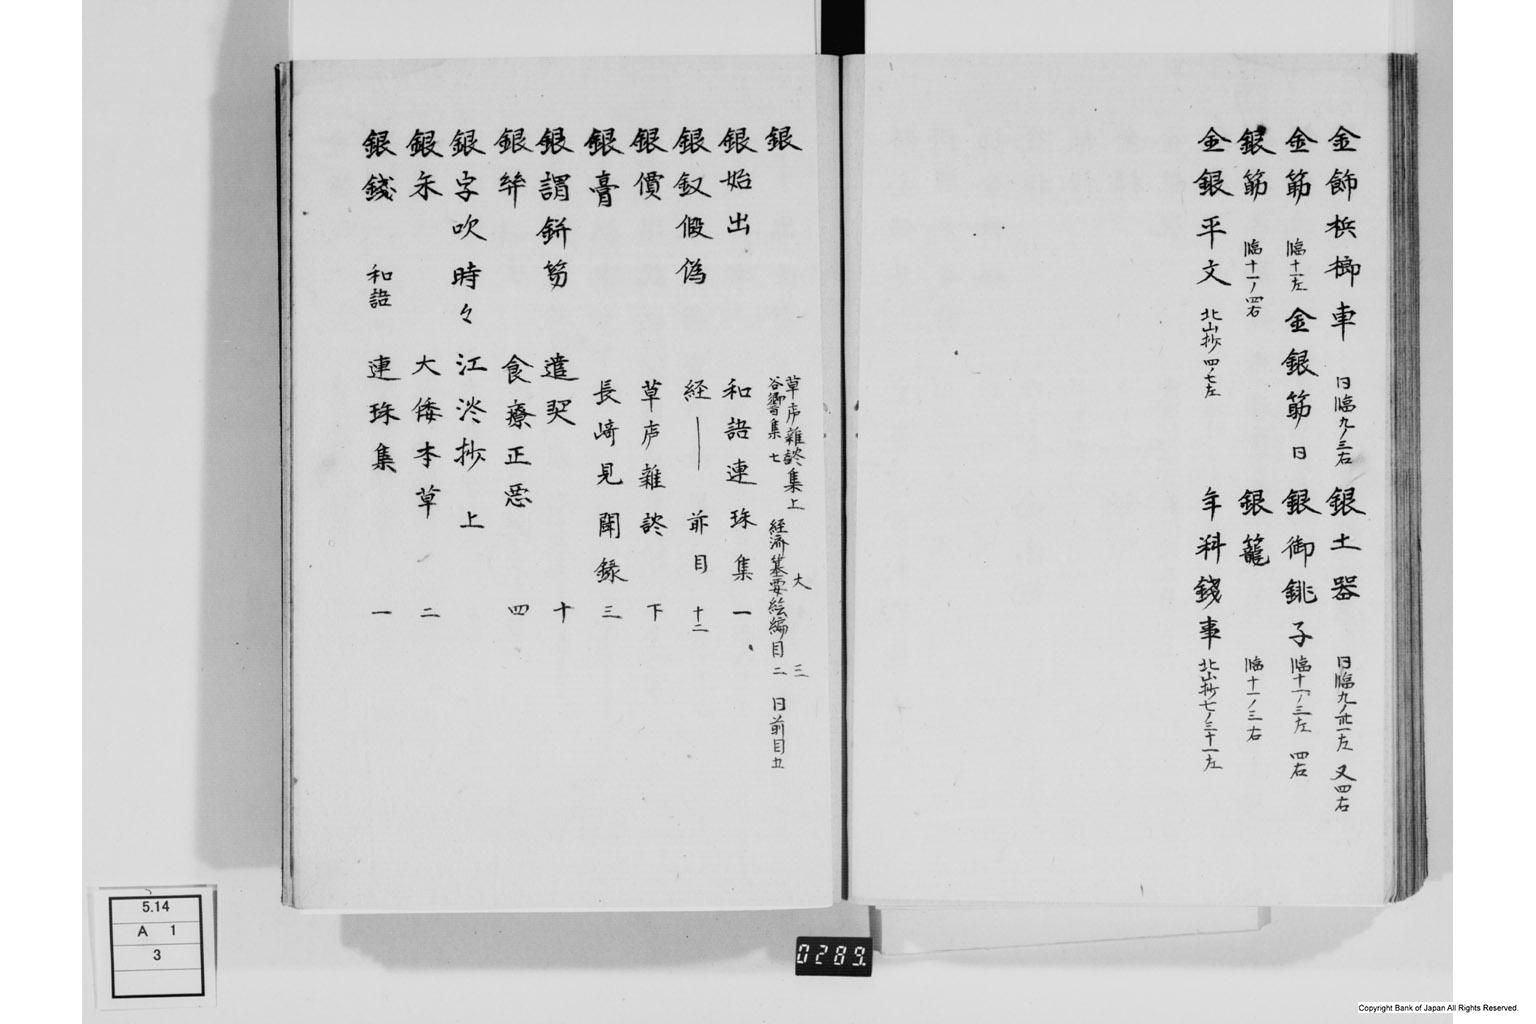 金飾梹榔車 日臨九ノ三右 銀土器 日臨九ノ廿一左 又四右
金筯 臨十一左 金銀筯 日 銀御銚子 臨十一ノ三左 四右
銀筯 臨十一ノ四右 銀籠 臨十一ノ三右
金銀平文 北山抄四ノ七左 年料錢事 北山抄七ノ三十一左
銀 草庐雜談集上 谷響集七 経済纂要 絵編 目二 大 三 日前目五
銀始出 和語連珠集 一
銀釵假偽 経｜前目 十二
銀價 草庐雜談 下
銀膏 長崎見聞錄 三
銀謂鉼笏 遣契 十
銀絣 食療正 四
銀字吹時々 江談抄 上
銀朱 大倭本草 二
銀錢 和語 連珠集 一
5.14
A 1
3
0289.
Copyright Bank of Japan All Rights Reserved.